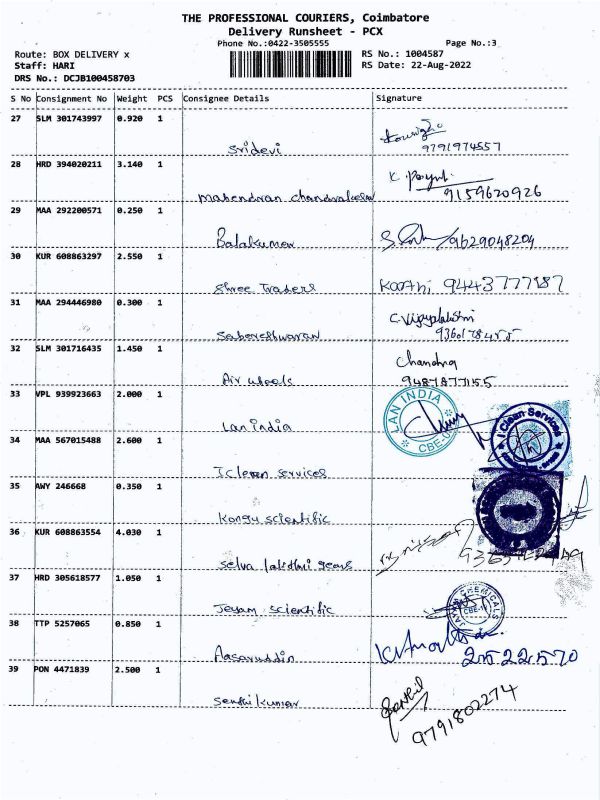 THE PROFESSIONAL COURIERS, Coimbatore
Delivery Runsheet - PCX
Phone No.:0422-3505555 Page No.:3
Route: BOX DELIVERY x RS No.: 1004587
Staff: HARI RS Date: 22-Aug-2022
DRS No.: DCJB100458703
S No Consignment No Weight PCS Consignee Details Signature
27 SLM 301743997 0.920 1
Sridevi 9791974557
28 HRD 394020211 3.140 1
Mahendran 9159620926
29 MAA 292200571 0.250 1
Balakumar 9629048204
30 KUR 608863297 2.550 1
Shree Traders
31 MAA 294446980 0.300 1
Sabareshwaran C. Vijayalakshmi
32 SLM 301716435 1.450 1
Air wheels Chandra
9487877155
33 VPL 939923663 2.000 1
Lan india LAN INDIA CBE
34 MAA 567015488 2.600 1
I Clean services I Clean Services
35 AWY 246668 0.350 1
Kongu scientific
36 KUR 608863554 4.030 1
Selva lakshmi gears
37 HRD 305618577 1.050 1
Jeyam scientific CHEMICALS
38 TTP 5257065 0.850 1
Aasaruddin
39 PON 4471839 2.500 1
Senthikumar Senthil
9791802274